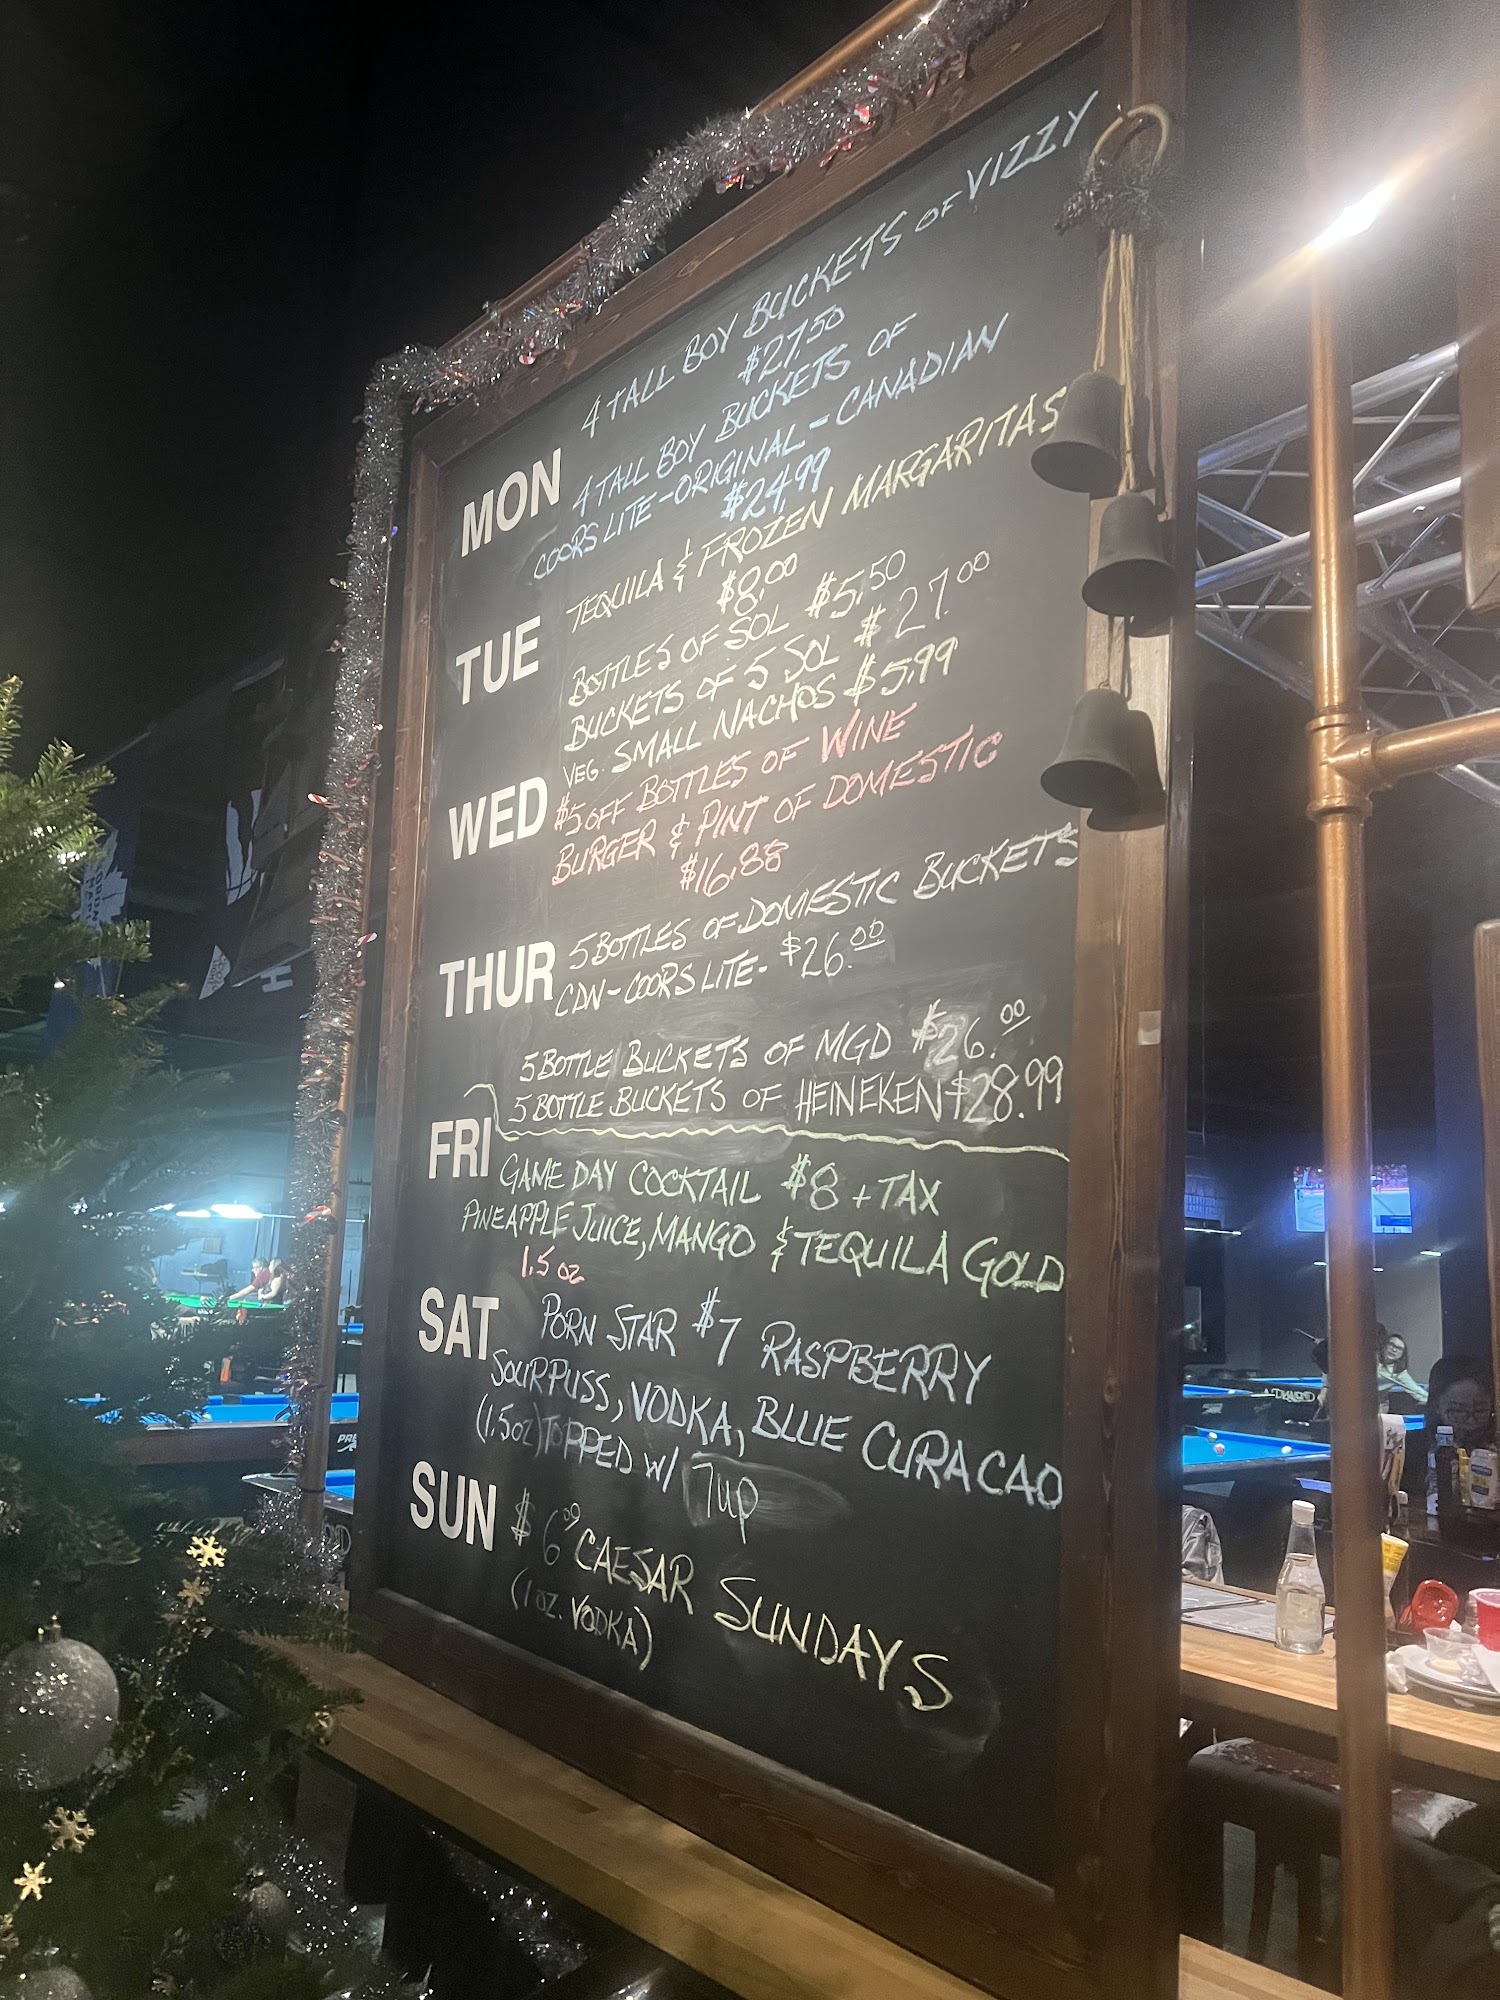 4 TALL BOY BUCKETS OF VIZZY
$27.50
MON
4 TALL BOY BUCKETS OF
COORS LITE-ORIGINAL-CANADIAN
$24.99
TUE
TEQUILA & FROZEN MARGARITAS
$8.00
BOTTLES OF SOL $5.50
BUCKETS OF 5 SOL $27.00
VEG. SMALL NACHOS $5.99
WED
$5 OFF BOTTLES OF WINE
BURGER & PINT OF DOMESTIC
$16.88
THUR
5 BOTTLES OF DOMESTIC BUCKETS
CDN-COORS LITE- $26.00
5 BOTTLE BUCKETS OF MGD $26.00
5 BOTTLE BUCKETS OF HEINEKEN $28.99
FRI
GAME DAY COCKTAIL $8 + TAX
PINEAPPLE JUICE, MANGO & TEQUILA GOLD
1.5 oz
SAT
PORN STAR $7 RASPBERRY
SOURPUSS, VODKA, BLUE CURACAO
(1.5oz) TOPPED W/ 7up
SUN
$6.09 CAESAR SUNDAYS
(1 OZ. VODKA)